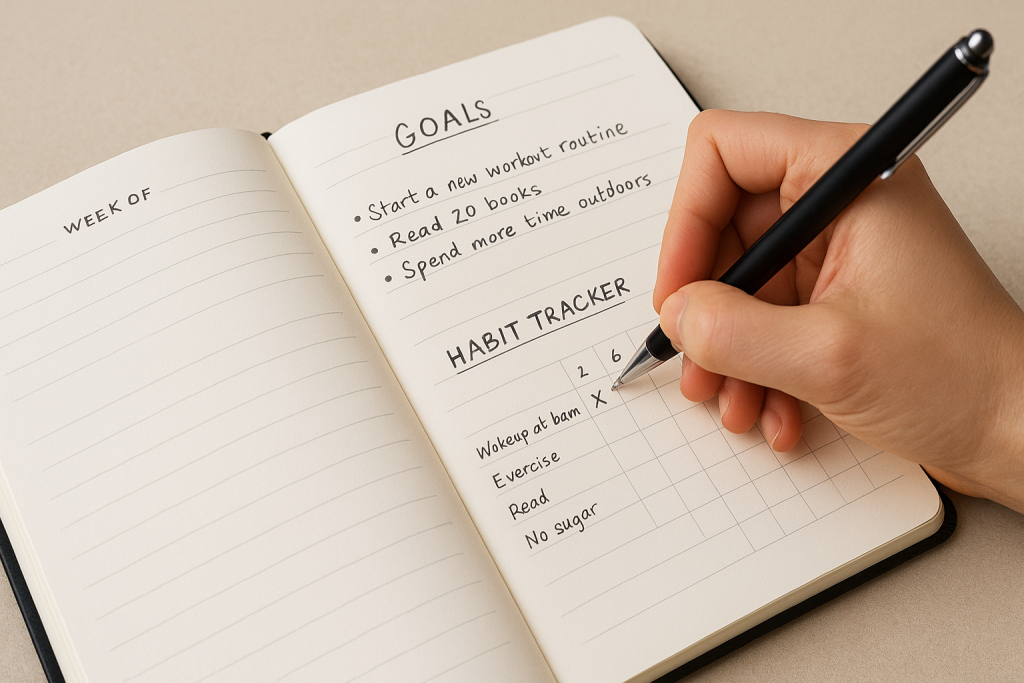 WEEK OF
GOALS
• Start a new workout routine
• Read 20 books
• Spend more time outdoors
HABIT TRACKER
2 6
Wokeup at bam X
Evercise
Read
No sugar